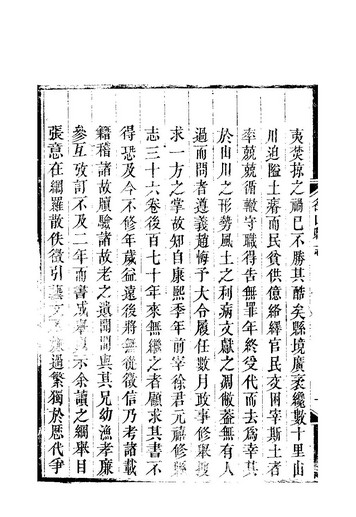 夷焚掠之禍已不勝其酷矣縣境廣袤纔數十里山
川迫隘土瘠而民貧供億絡繹官民交困宰斯土者
率兢兢循轍守職得告無罪年終受代而去為幸其
於山川之形勢風土之利病文獻之凋敝蓋無有人
過而問者遵義趙悔予大令履任數月政事修舉搜
求一方之掌故知自康熙季年前宰徐君元禧修縣
志三十六卷後百七十年來無繼之者顧求其書不
得恐及今不修年歲益遠後將無徵信乃考諸載
籍稽諸故牘驗諸故老之遺聞與其兄幼漁孝廉
參互攷訂不及二年而書成示余讀之綱舉目
張意在網羅散佚徵引過繁獨於歷代爭